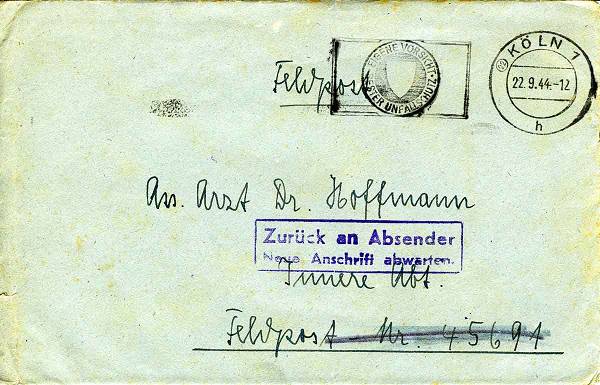 Feldpost
EIGENE VORSICHT
BESTER UNFALLSCHUTZ
KÖLN 1
22.9.44.-12
h
Ass. Arzt Dr. Hoffmann
Zurück an Absender
Neue Anschrift abwarten.
Innere Abt.
Feldpost Nr. 45691